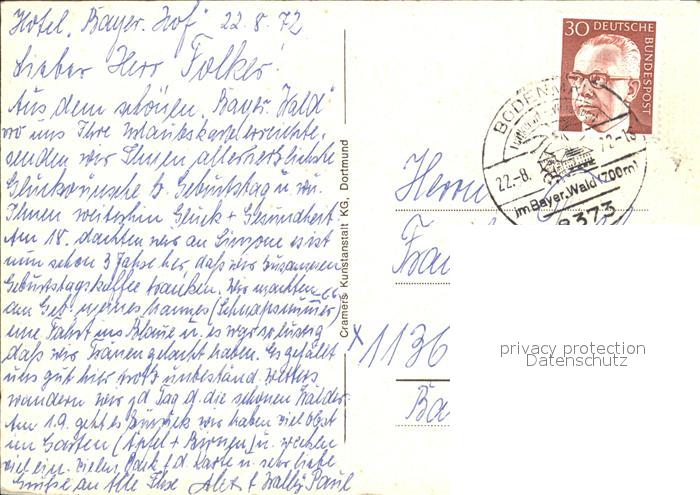 Hotel "Bayer. Hof" 22.8.72
Lieber Herr Folker!
Aus dem schönen "Bayer. Wald"
wo uns Ihre Urlaubskarte erreichte,
senden wir Ihnen allerherzlichste
Glückwünsche z. Geburtstag u. wü.
Ihnen weiterhin Glück + Gesundheit.
Am 18. dachten wir an Simone es ist
nun schon 3 Jahre her, daß wir zusammen
Geburtstagskaffee tranken. Wir machten
am Geb. meines Mannes (Schnapsnummer 66)
eine Fahrt ins Blaue u. es war so lustig
daß wir Tränen gelacht haben. Es gefällt
uns gut hier trotz unbeständ. Wetters
wandern wir jd Tag d. die schönen Wälder.
Am 1.9. geht es zurück wir haben viel Obst
im Garten (Äpfel + Birnen) u. wecken
viel ein. Vielen Dank f. d. Karte u. sehr liebe
Grüße an Alle Ihre Alex + Wally Paul
Cramers Kunstanstalt KG, Dortmund
30 DEUTSCHE
BUNDESPOST
BODENMAIS
22.-8. 72-18
im Bayer. Wald (700m)
8373
Herrn
1136
Ba
privacy protection
Datenschutz